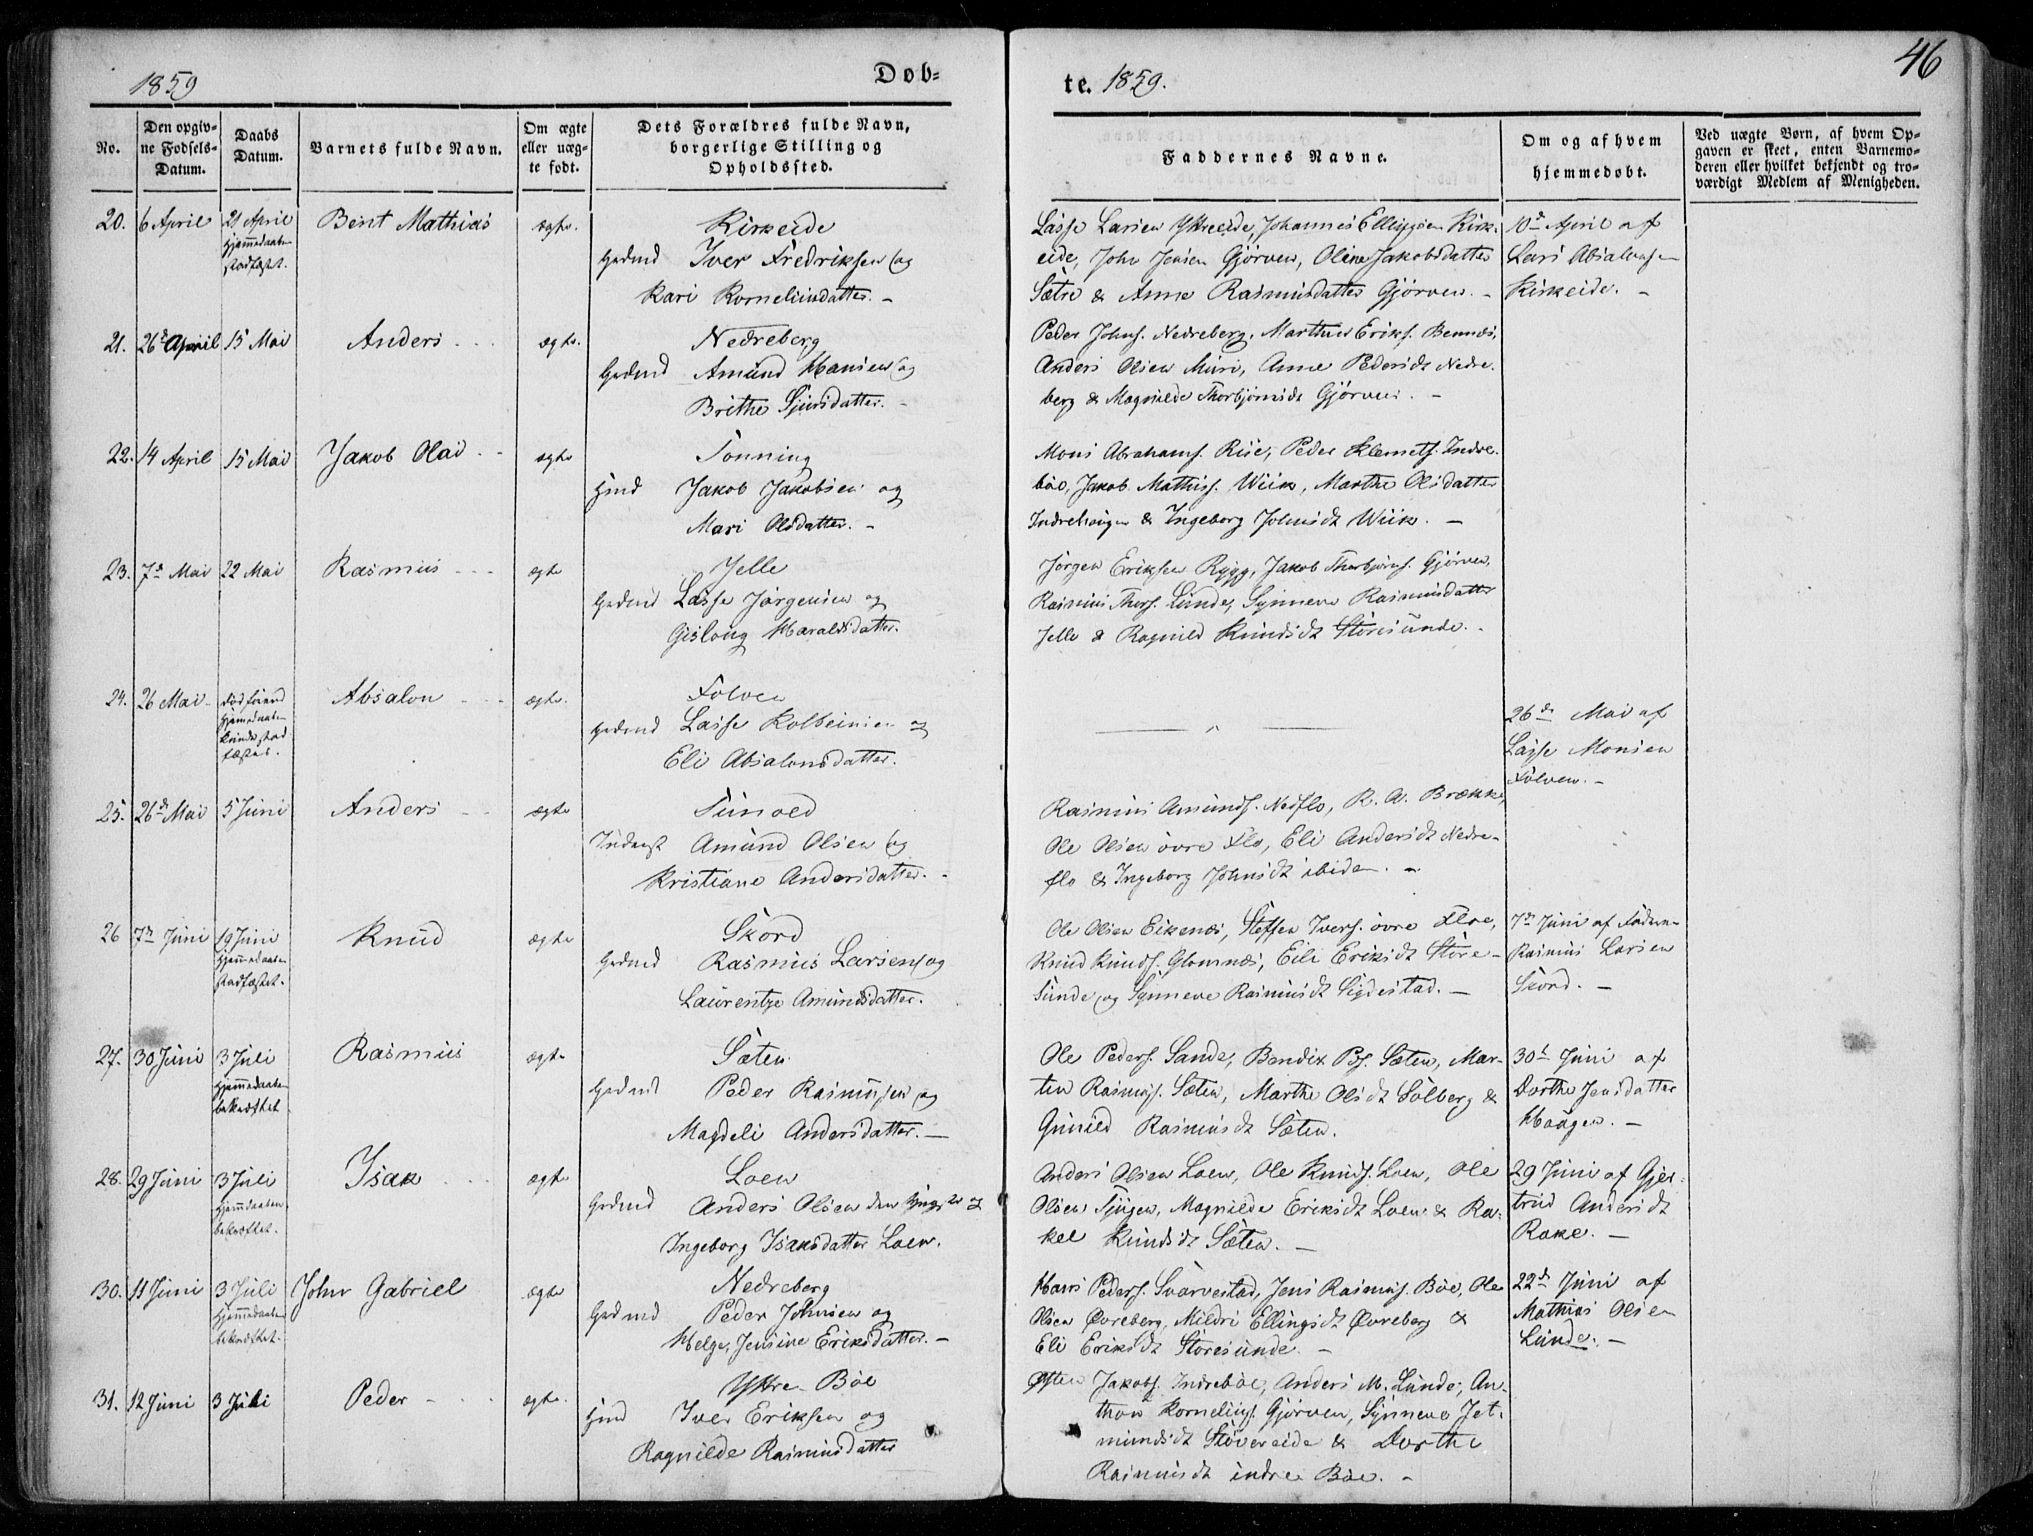 1859
Døb=
te. 1859.
46
No.
Den opgiv=
ne Fødsels=
Datum.
Daabs
Datum.
Barnets fulde Navn.
Om ægte
eller uæg=
te født.
Dets Forældres fulde Navn,
borgerlige Stilling og
Opholdssted.
Faddernes Navne.
Om og af hvem
hjemmedøbt.
Ved uægte Børn, af hvem Op=
gaven er skeet, enten Barnemo=
deren eller hvilket bekjendt og tro=
værdigt Medlem af Menigheden.
20. 6 April 21 April Bent Mathias ægte. Kirkeide
Hjemmedaaben
stadfæstet.
Gadmd Iver Fredriksen og
Kari Korneliusdatter. -
Lasse Larsen Ystreeide, Johannes Ellingsen Kirk-
eide, John Jensen Gjørven, Oline Jakobsdatter
Sætre & Anne Rasmusdatter Gjørven. -
10d April af
Lars Absalonsen
Kirkeide. -
21. 26d April 15 Mai Anders ægte. Nedreberg
Gadmd Amund Hansen og
Brithe Sjursdatter. -
Peder Johns. Nedreberg, Marthus Eriks. Bennæs,
Anders Olsen Muri, Anne Pedersdt Nedre-
berg & Magnilde Thorbjørnsdt Gjørven. -
22. 14 April 15 Mai Jakob Olai ægte Tonning
Hmd Jakob Jakobsen og
Mari Olsdatter. -
Mons Abrahams. Rise, Peder Klemets. Indre-
böe, Jakob Mathiss. Wiik, Marthe Olsdatter
Indrehaugen & Ingeborg Johnsdt Wiik. -
23. 7d Mai 22 Mai Rasmus ægte Jelle
Gadmd Lasse Jørgensen og
Gislaug Haraldsdatter.
Jørgen Eriksen Rygg, Jakob Thorbjørns. Gjørven,
Rasmus Thors. Lunde, Synneve Rasmusdatter
Jelle & Ragnild Knudsdt Storesunde. -
24. 26 Mai død førend
hjemmedaaben
kunde stad
fæstes.
Absalon ægte. Folven
Gadmd Lasse Kolbeinsen og
Eli Absalonsdatter.
26de Mai af
Lasse Monsen
Folven. -
25. 26de Mai 5 Juni Anders ægte Tunold
Inderst Amund Olsen og
Kristiane Andersdatter. -
Rasmus Amunds. Nedflo, R. A. Brække,
Ole Olsen övre Flo, Eli Andersdt Nedre-
flo & Ingeborg Johnsdt ibidem. -
26 7de Juni 19 Juni Knud ægte Skord
Hjemmedaaben
stadfæstet.
Gadmd Rasmus Larsen og
Laurentze Amundsdatter.
Ole Olsen Eikenæs, Steffen Ivers. övre Floe,
Knud Knuds. Glomnæs, Eli Eriksdt Store-
sunde og Synneve Rasmusdt Sigdestad. -
7de Juni af Faderen
Rasmus Larsen
Skord. -
27. 30 Juni 3 Juli Rasmus ægte Sæten
Hjemmedaaben
bekræftet
Gadmd Peder Rasmussen og
Magdeli Andersdatter. -
Ole Peders. Sande, Bendix Ps. Sæten, Mar-
ten Rasmuss. Sæten, Marthe Olsdt Solberg &
Gunild Rasmusdt Sæten.
30d Juni af
Dorthe Jensdatter
Haugen. -
28. 29 Juni 3 Juli Isak ægte Loen
Hjemmedaaben
bekræftet.
Gadmd Anders Olsen den yngre og
Ingeborg Isaksdatter Loen.
Anders Olsen Loen, Ole Knuds. Loen, Ole
Olsen Tjugen, Magnilde Eriksdt Loen & Ra-
kel Knudsdt Sæten. -
29 Juni af Gjer-
trud Andersdt
Rake. -
30. 11 Juni 3 Juli John Gabriel ægte Nedreberg
Hjemmedaaben
bekræftet.
Gadmd Peder Johnsen og
Helge, Jensine Eriksdatter. -
Hans Peders. Svarvestad, Jens Rasmus. Böe, Ole
Olsen Øvreberg, Mildri Ellingsdt Øvreberg &
Eli Eriksdt Storesunde. -
22d Juni af
Mathias Olsen
Lunde. -
31. 12 Juni 3 Juli Peder ægte. Ystre Böe
Hmd Iver Eriksen og
Ragnilde Rasmusdatter
Østen Jakobs. Indreböe, Anders M. Lunde, An-
thon Kornelius. Gjørven, Synneve Jet-
mundsdt Stövereide & Dorthe
Rasmusdt indre Böe. -